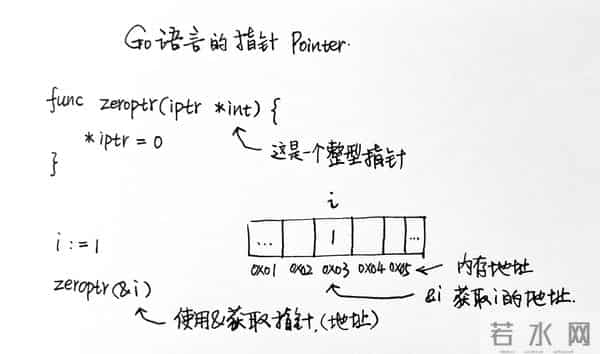 Go语言的指针 Pointer.
func zeroptr(iptr *int) {
*iptr = 0
}
这是一个整型指针
i
... 1 ...
0x01 0x02 0x03 0x04 0x05
内存地址
&i 获取i的地址.
i := 1
zeroptr(&i)
使用&获取指针.(地址)
若水网